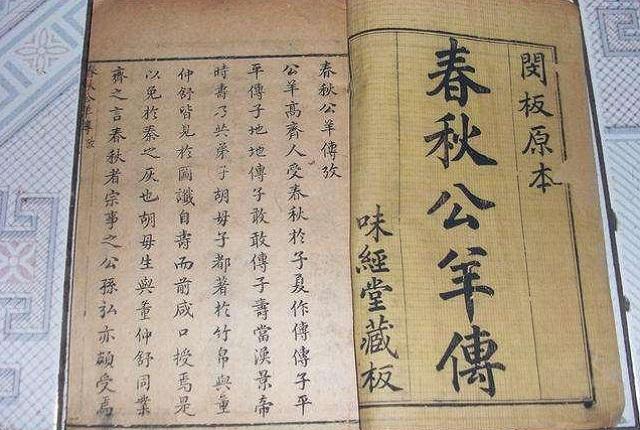 閔板原本
春秋公羊傳
味經堂藏板
春秋公羊傳攷
公羊高齊人受春秋於子夏作傳傳子平
平傳子地地傳子敢敢傳子壽當漢景帝
時壽乃共弟子胡毋子都著於竹帛與董
仲舒皆見於圖讖自壽而前咸口授焉是
以免於秦之灰也胡毋生與董仲舒同業
齊之言春秋者宗事之公孫弘亦頗受焉
春秋公羊傳攷